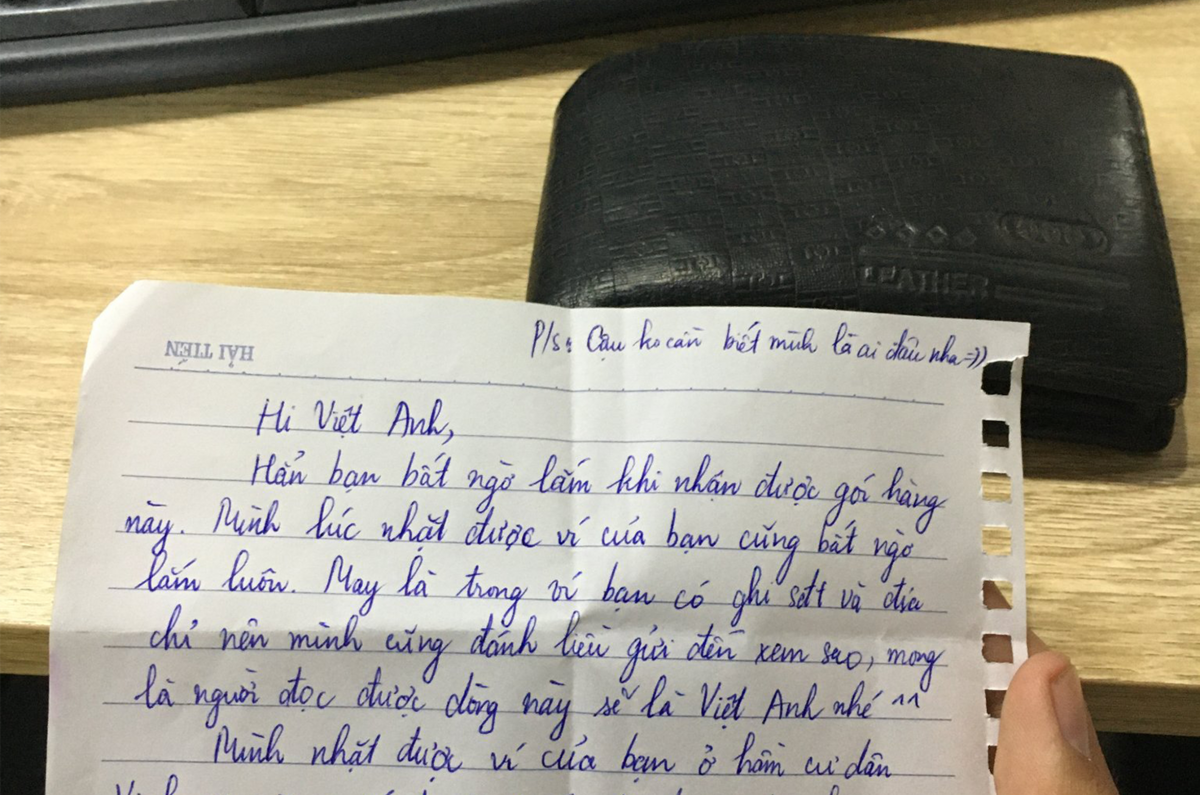 LEATHER
HẢI TIẾN
P/s: Cậu ko cần biết mình là ai đâu nha =))
Hi Việt Anh,
Hẳn bạn bất ngờ lắm khi nhận được gói hàng
này. Mình lúc nhặt được ví của bạn cũng bất ngờ
lắm luôn. May là trong ví bạn có ghi sđt và địa
chỉ nên mình cũng đánh liều gửi đến xem sao, mong
là người đọc được dòng này sẽ là Việt Anh nhé ^^
Mình nhặt được ví của bạn ở hầm cư dân